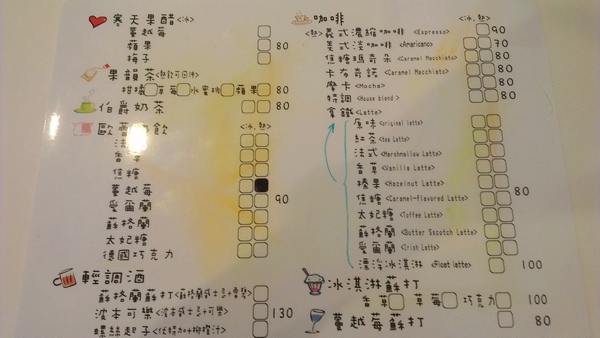 寒天果醋<冰>
蔓越莓
蘋果 80
梅子
果韻茶<熱飲可回沖>
柑橘 草莓 水蜜桃 蘋果 80
伯爵奶茶 80
<冰、熱>
香草
焦糖
蔓越莓
愛爾蘭 90
蘇格蘭
太妃糖
德國巧克力
輕調酒
蘇格蘭蘇打
波本可樂 130
螺絲起子
咖啡 <冰、熱>
<熱>義式濃縮咖啡 <Espresso> 90
美式淡咖啡 <Amaricano> 70
焦糖瑪奇朵 <Caramel Macchiato> 80
卡布奇諾 <Caramel Macchiato> 80
摩卡 <Mocha> 80
特調 <House blend> 80
拿鐵 <Latte>
原味 <original latte>
紅茶 <tea Latte>
法式 <Marshmallow Latte>
香草 <Vanilla Latte>
榛果 <Hazelnut Latte> 80
焦糖 <Caramel-flavored Latte>
太妃糖 <Toffee Latte>
蘇格蘭 <Butter Scotch Latte>
愛爾蘭 <Irish Latte>
漂浮冰淇淋 <Float latte> 100
冰淇淋蘇打
香草 草莓 巧克力 100
蔓越莓蘇打 80